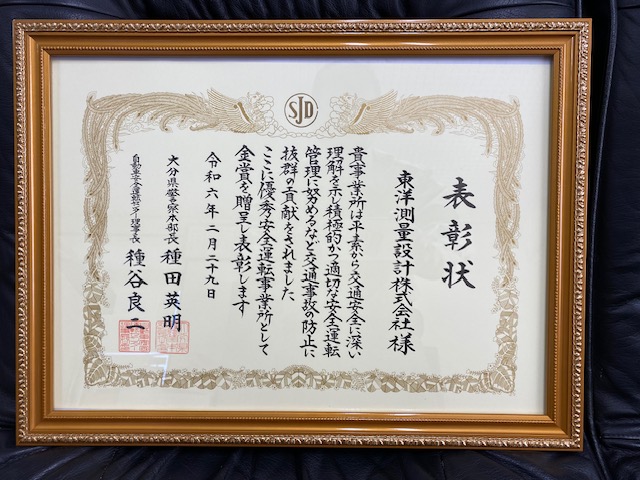 SJD
表彰状
東洋測量設計株式会社 様
貴事業所は平素から交通安全に深い
理解を示し積極的かつ適切な安全運転
管理に努めるなど交通事故の防止に
抜群の貢献をされました
ここに優秀安全運転事業所として
金賞を贈呈し表彰します
令和六年二月二十九日
大分県警察本部長 種田英明
自動車安全運転センター理事長 種谷良二